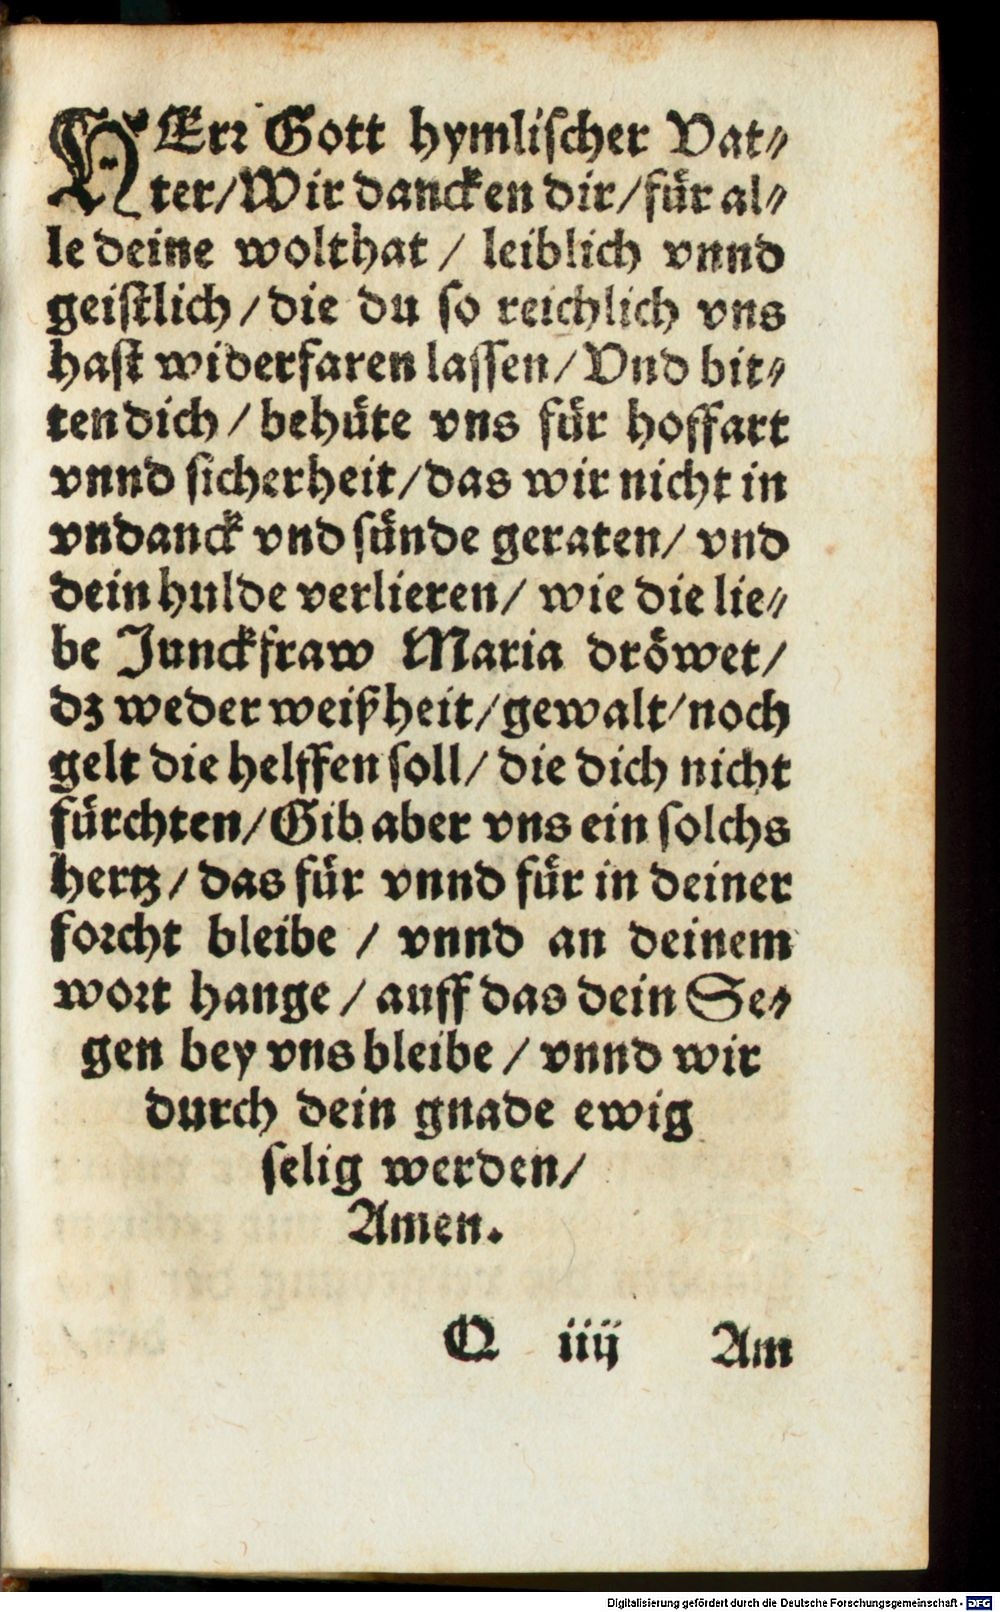 HErr Gott hymlischer Vat⸗
ter/Wir dancken dir/für al⸗
le deine wolthat / leiblich vnnd
geistlich/die du so reichlich vns
hast widerfaren lassen/Vnd bit⸗
ten dich / behüte vns für hoffart
vnnd sicherheit/das wir nicht in
vndanck vnd sünde geraten/ vnd
dein hulde verlieren/ wie die lie⸗
be Junckfraw Maria dröwet/
dz weder weißheit/gewalt/noch
gelt die helffen soll/ die dich nicht
fürchten/Gib aber vns ein solchs
hertz/das für vnnd für in deiner
forcht bleibe / vnnd an deinem
wort hange / auff das dein Se⸗
gen bey vns bleibe / vnnd wir
durch dein gnade ewig
selig werden/
Amen.
Q iiij Am
Digitalisierung gefördert durch die Deutsche Forschungsgemeinschaft - DFG